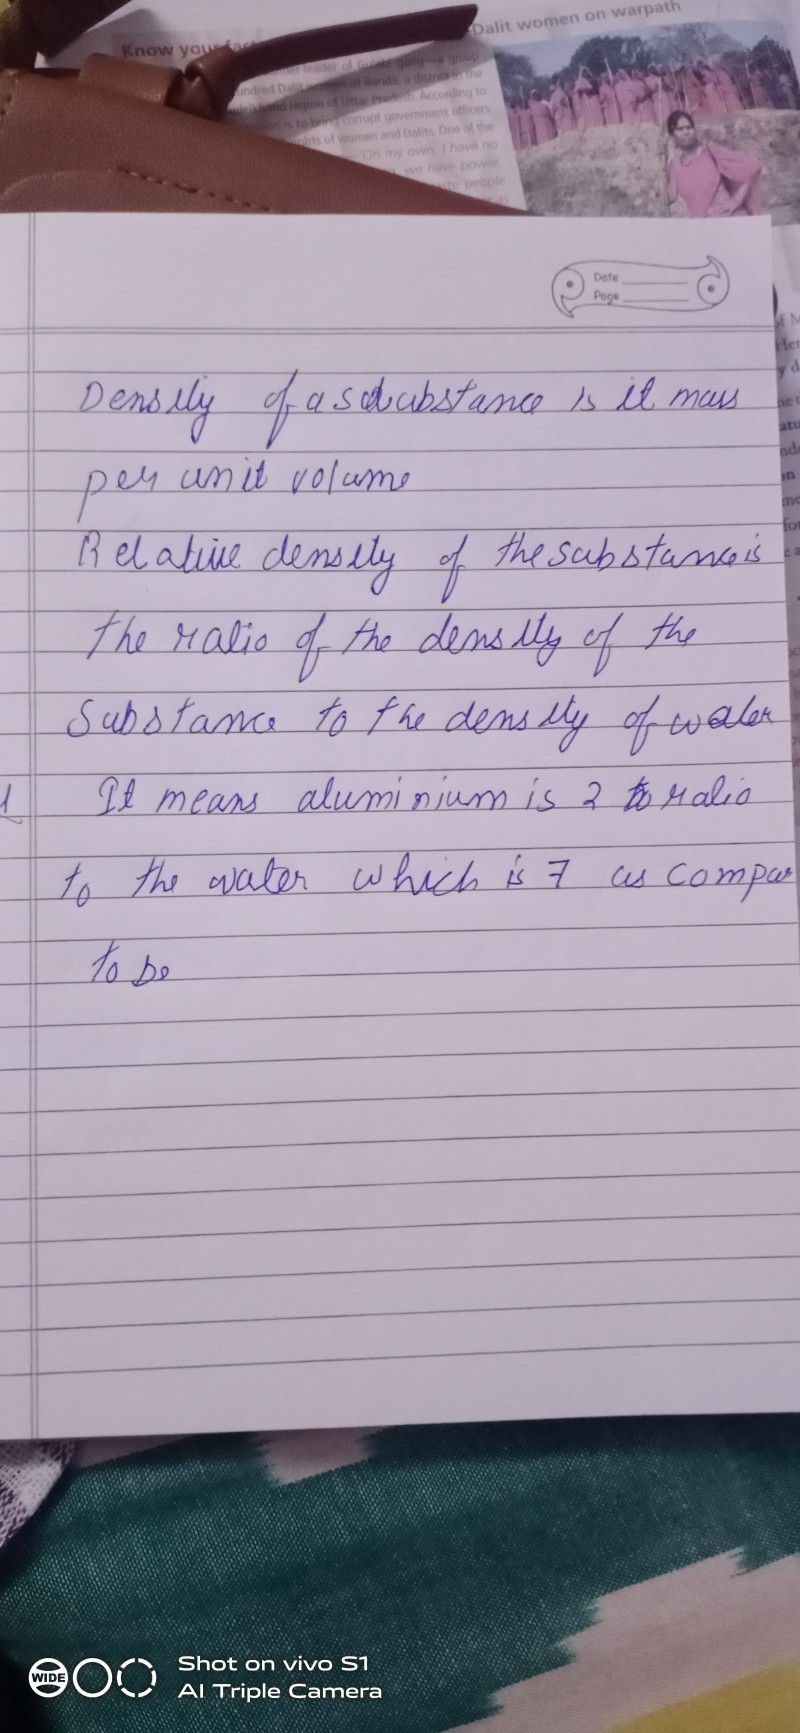 Know your
Dalit women on warpath
leader of Gulabi gang—a group
hundred Dalit women of Banda, a district in the
region of Uttar Pradesh. According to
is to bring corrupt government officers
rights of women and Dalits. One of the
"On my own, I have no
we have power
people
Date
Page
Density of a substance is it mass
per unit volume
Relative density of the substance is
the ratio of the density of the
Substance to the density of water
It means aluminium is 2 ratio
to the water which is 7 as compar
to be
WIDE
Shot on vivo S1
AI Triple Camera